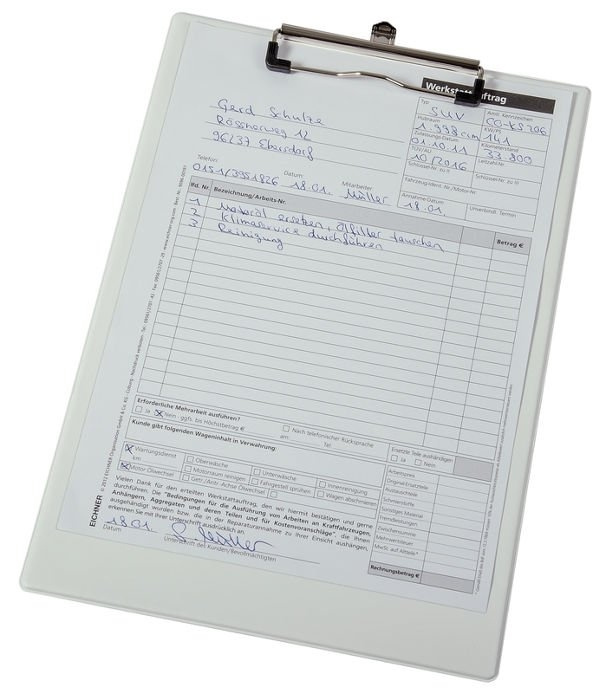 Werkstattauftrag
Gerd Schulze
Rössnerweg 12
96237 Ebersdorf
Typ
SUV
Amtl. Kennzeichen
CO-KS 206
Hubraum
1.998 ccm
KW/PS
141
Zulassungs-Datum
01.10.11
Kilometerstand
33.800
TÜV/AU
10/2016
Leitzahl-Nr.
Schlüssel-Nr. zu II
Schlüssel-Nr. zu III
Fahrzeug-Ident.-Nr./Motor-Nr.
Annahme-Datum
18.01.
Unverbindl. Termin
Telefon:
0151/3951826
Datum
18.01.
Mitarbeiter
Müller
lfd. Nr. Bezeichnung/Arbeits-Nr. Betrag €
1 Motoröl ersetzen, Ölfilter tauschen
2 Klimaservice durchführen
3 Reinigung
Erforderliche Mehrarbeit ausführen?
Ja X Nein - ggfs. bis Höchstbetrag €
Nach telefonischer Rücksprache
am: Tel.
Ersetzte Teile aushändigen
Ja Nein
Kunde gibt folgenden Wageninhalt in Verwahrung:
X Wartungsdienst Oberwäsche Unterwäsche Innenreinigung
km Motorraum reinigen Fahrgestell sprühen Wagen abschmieren
X Motor Ölwechsel Getr./Antr. Achse Ölwechsel
Arbeitspreis
Original-Ersatzteile
Austauschteile
Schmierstoffe
Sonstiges Material
Fremdleistungen
Zwischensumme
Mehrwertsteuer
MwSt. auf Altteile*
Rechnungsbetrag €
Vielen Dank für den erteilten Werkstattauftrag, den wir hiermit bestätigen und gerne
durchführen. Die "Bedingungen für die Ausführung von Arbeiten an Kraftfahrzeugen,
Anhängern, Aggregaten und deren Teilen und für Kostenvoranschläge", die Ihnen
ausgehändigt wurden, bzw. die in der Reparaturannahme zu Ihrer Einsicht aushängen,
erkennen Sie mit Ihrer Unterschrift ausdrücklich an.
18.01. G. Müller
Datum Unterschrift des Kunden/Bevollmächtigten
EICHNER